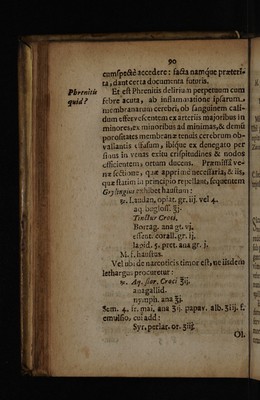 90
cumspectè accedere: facta namque præteri-
ta, dant certa documenta futuris.
Phrenitis quid?
Et est Phrenitis delirium perpetuum cum
febre acuta, ab inflammatione ipsarum
membranarum cerebri, ob sanguinem calidum
effervescentem ex arteriis majoribus in
minores, ex minoribus ad minimas, & densiores
membranæ tenuis cerebrum
effusum, ibique ex denegato per
sinus in venas exitu crispitudines & nodos
efficientem, ortum ducens. Præmissâ ve-
næ sectione, quæ apprimè necessaria, & iis,
quæ statim in principio repellant, sequentem
exhibet haustum:
opiat. gr. iij. vel 4.
aq. bugloss. ℥j.
Tinctur Croci.
Borrag. ana gt. vj.
essent. corall. gr. ij.
lapid. 5. pret. ana gr. j.
M. f. haustus.
Vel ubi de narcoticis timor est, ne iisdem
lethargus procuretur:
℞. Aq. flor. Croci ℥ij.
anagallid.
nymph. ana ℥j.
Sem. 4. fr. mai. ana ʒij. papav. alb. ʒiij. f.
emulsio, cui add:
Syr. perlar.
Ol.